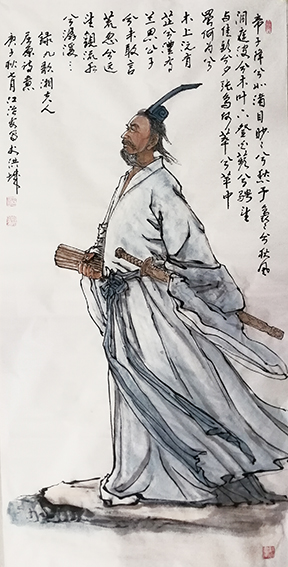 帝子降兮北渚目眇々兮愁予袅々兮秋风
洞庭波兮木叶下登白薠兮骋望
与佳期兮夕张鸟何萃兮苹中
罾何为兮
木上沅有
芷兮澧有
兰思公子
兮未敢言
荒忽兮远
望观流水
兮潺湲…
录九歌湘夫人
屈原诗意
庚子秋月江